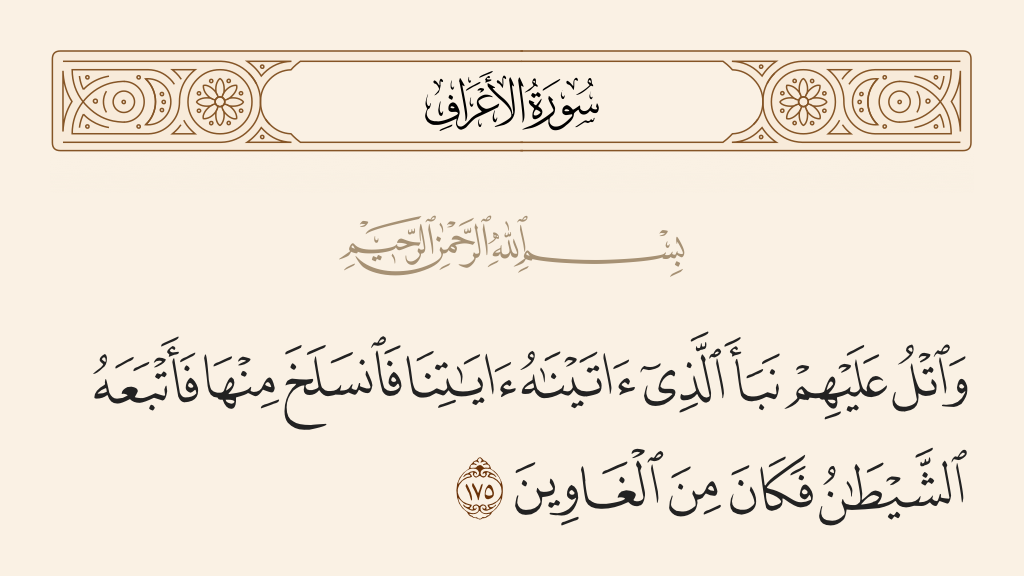 سُورَةُ الأَعْرَافِ
بِسْمِ ٱللَّهِ ٱلرَّحْمَٰنِ ٱلرَّحِيمِ
وَٱتْلُ عَلَيْهِمْ نَبَأَ ٱلَّذِىٓ ءَاتَيْنَٰهُ ءَايَٰتِنَا فَٱنسَلَخَ مِنْهَا فَأَتْبَعَهُ
ٱلشَّيْطَٰنُ فَكَانَ مِنَ ٱلْغَاوِينَ ١٧٥